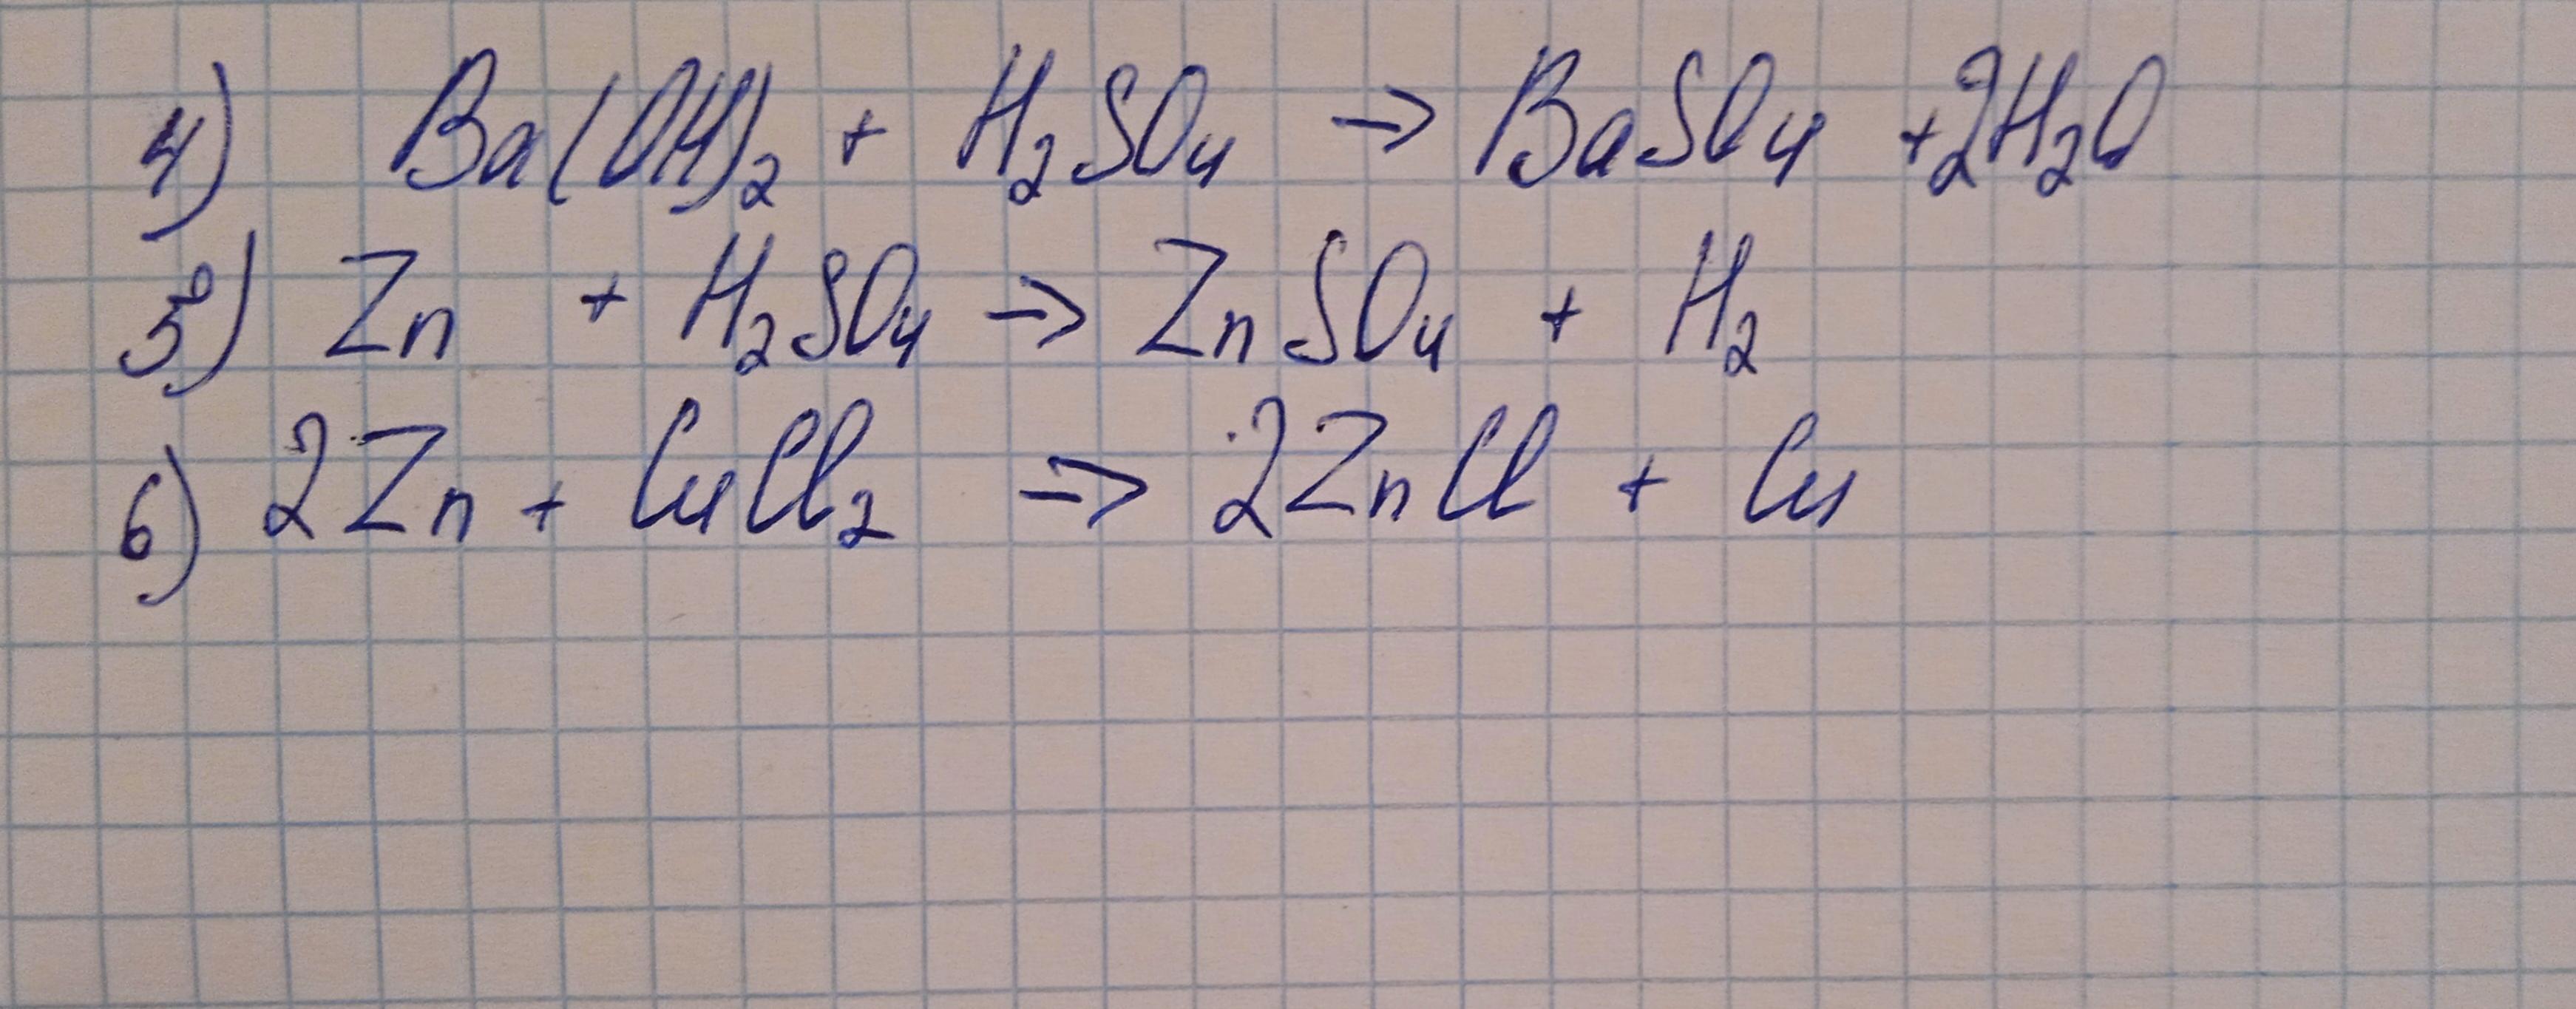 4) Ba(OH)₂ + H₂SO₄ → BaSO₄ + 2H₂O
5) Zn + H₂SO₄ → ZnSO₄ + H₂
6) 2Zn + CuCl₂ → 2ZnCl + Cu